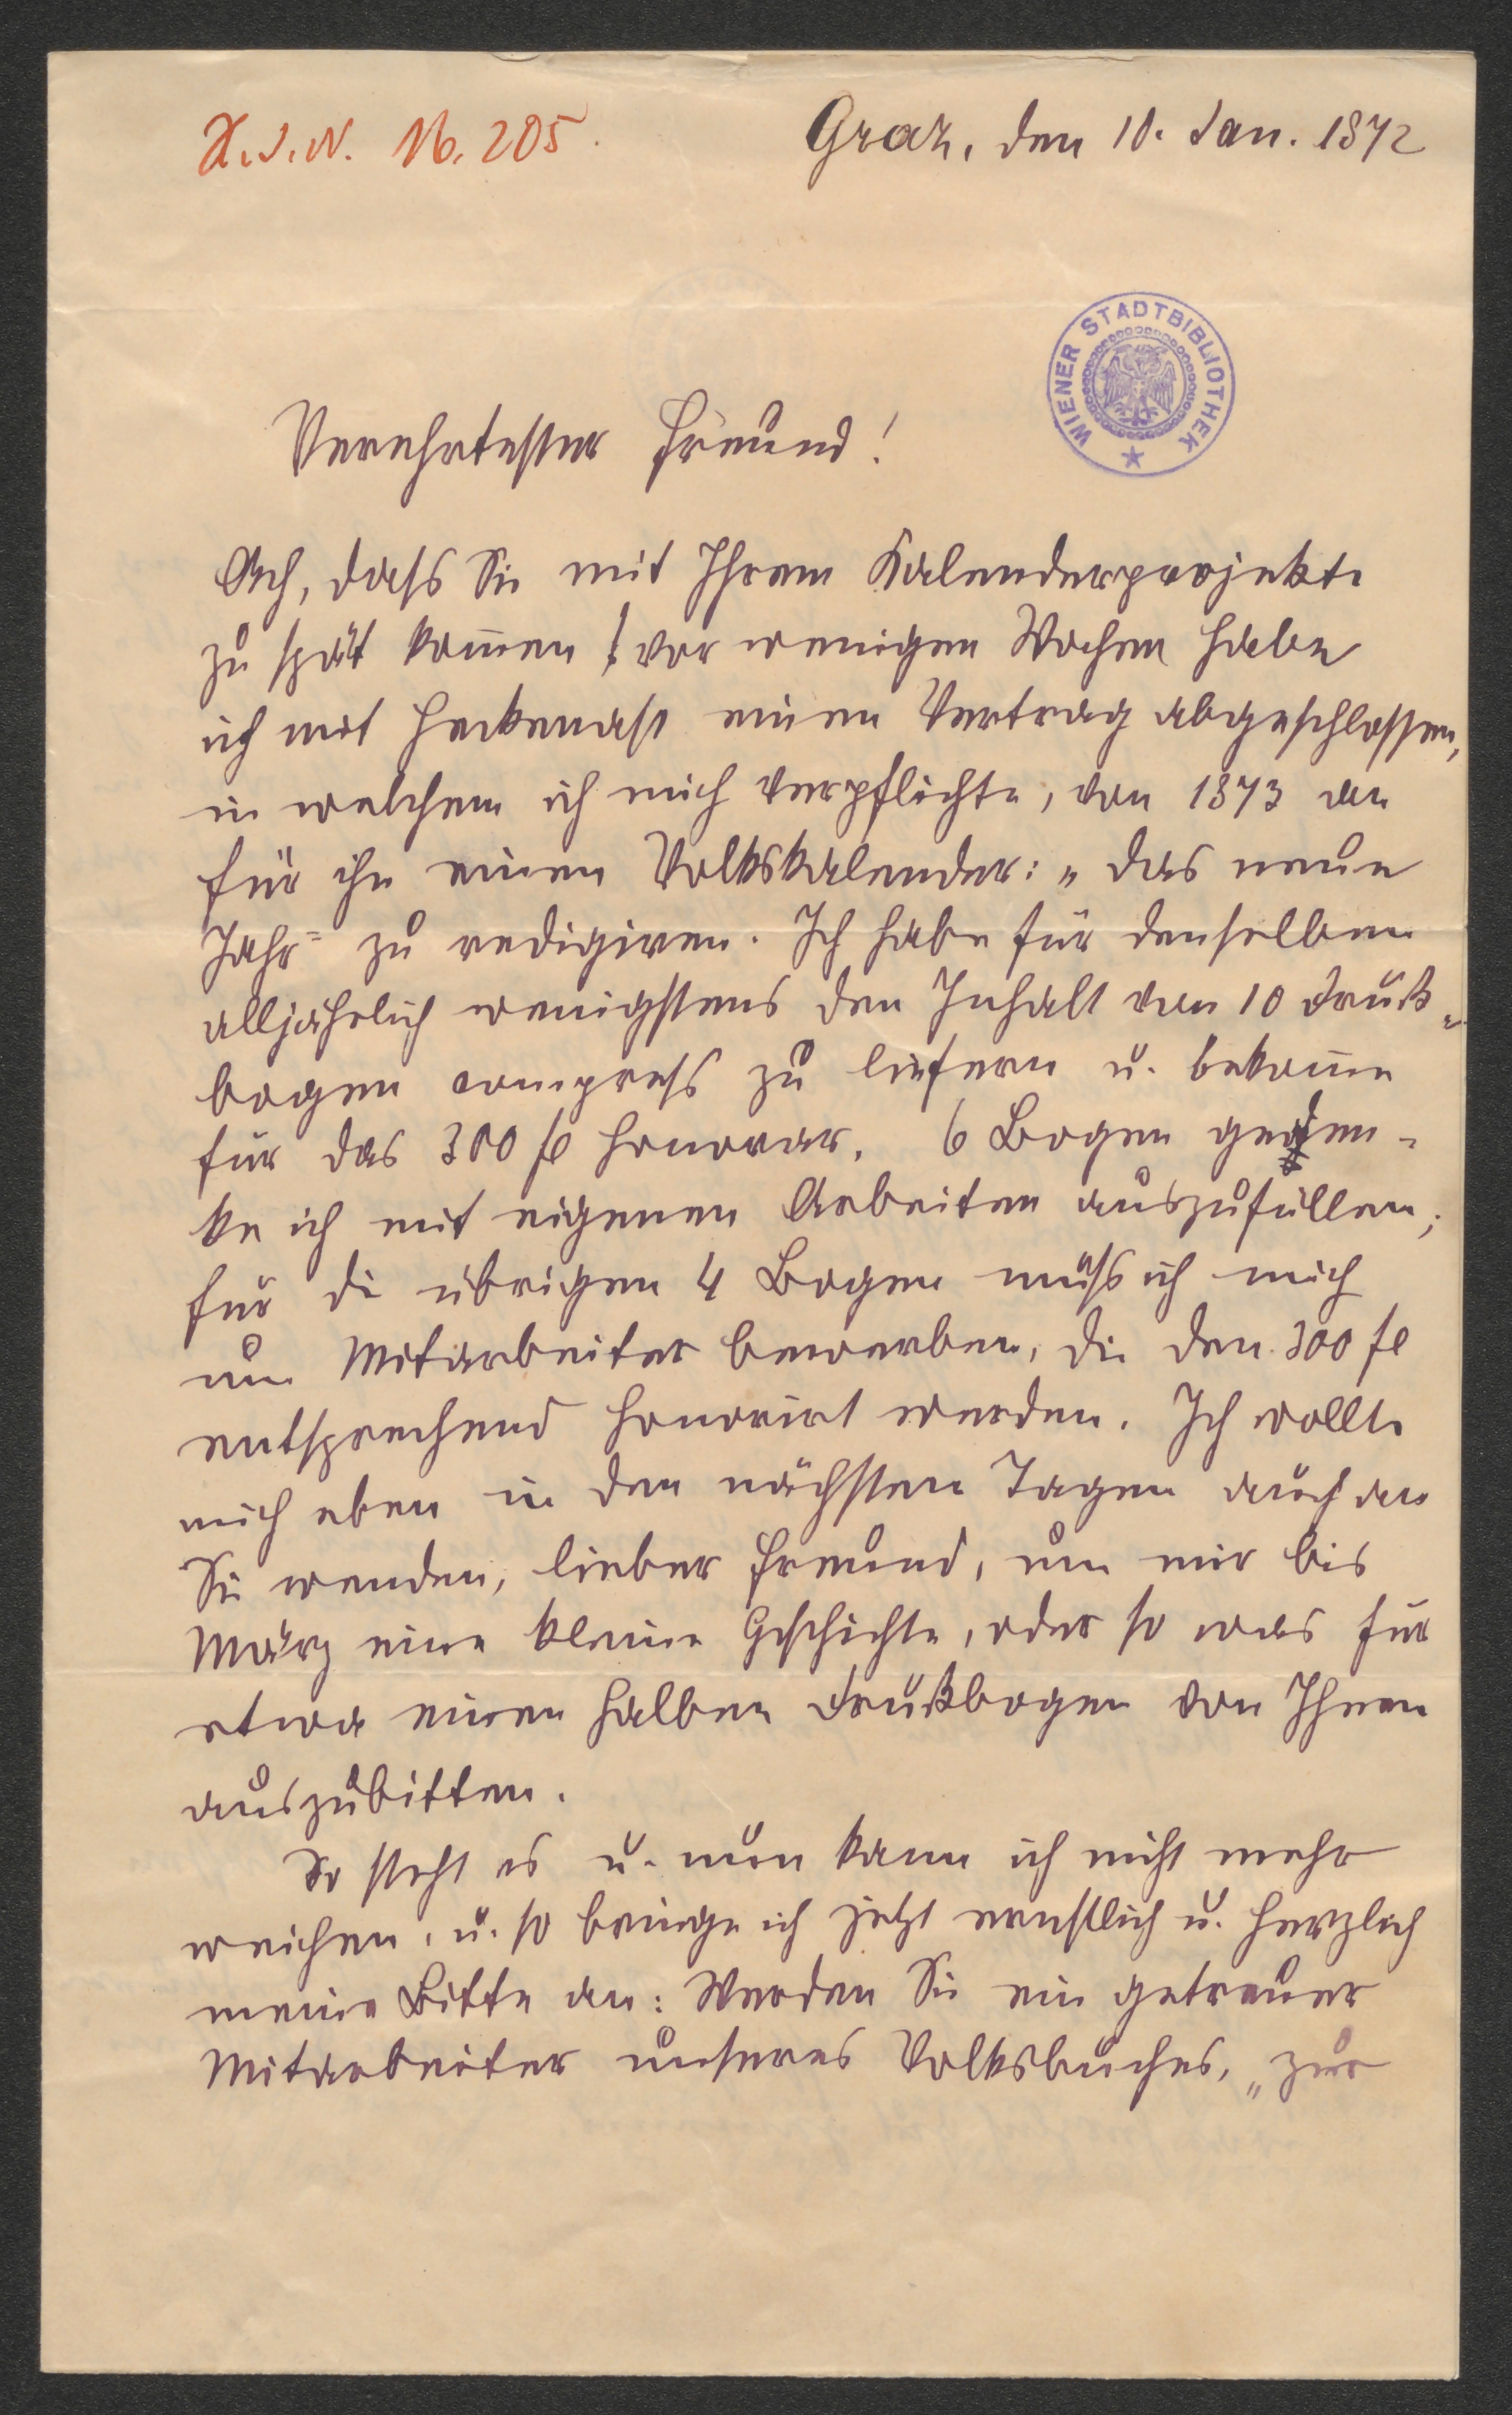 H.I.N. No. 205.
Graz, den 10. Jan. 1872
WIENER STADTBIBLIOTHEK
Verehrtester Freund!
Ach, dass Sie mit Ihrem Kalenderprojekte
zu spät kom̄en! vor wenigen Wochen habe
ich mit Heckenast einen Vertrag abgeschlossen,
in welchem ich mich verpflichte, von 1873 an
für ihn einen Volkskalender: „das neue
Jahr“ zu redigiren. Ich habe für denselben
alljährlich wenigstens den Inhalt von 10 Druck-
bogen compress zu liefern u. bekom̄e
für das 300 fl Honorar. 6 Bogen geden-
ke ich mit eigenen Arbeiten auszufüllen;
für die übrigen 4 Bogen muss ich mich
um Mitarbeiter bewerben, die den 300 fl
entsprechend honorirt werden. Ich wollte
mich eben in den nächsten Tagen auch an
Sie wenden, lieber Freund, um mir bis
März eine kleine Geschichte, oder so was für
etwa einen halben Druckbogen von Ihnen
auszubitten.
So steht es u. nun kann ich nicht mehr
weichen, u. so bringe ich jetzt ernstlich u. herzlich
meine Bitte an: Werden Sie ein getreuer
Mitarbeiter unseres Volksbuches, „zur